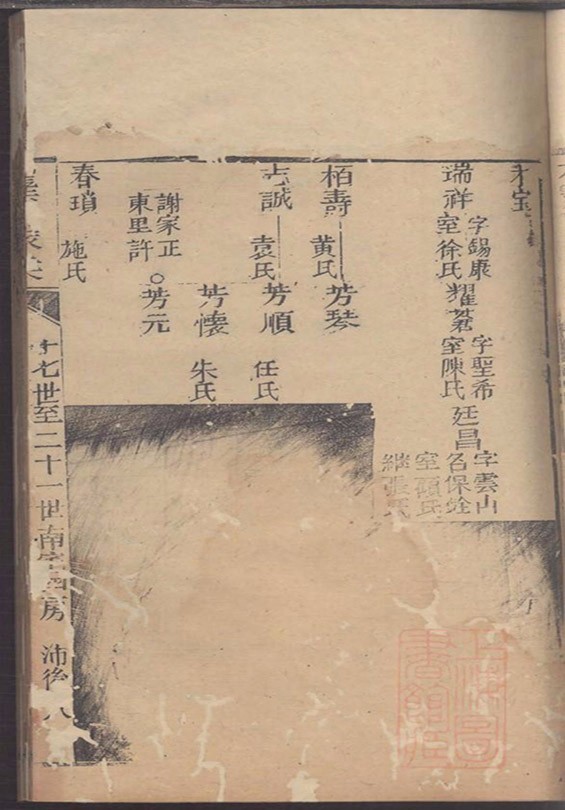 瑞祥 字錫康 室徐氏
耀 字聖希 室陳氏
廷昌 字雲山 名保 室顧氏 繼張氏
栢壽 黄氏
芳琴
誠 袁氏
芳順 任氏
芳懷 朱氏
謝家正
東里許
○芳元
春瑣 施氏
十七世至二十一世南 房 沛後 八
上海圖
書館藏